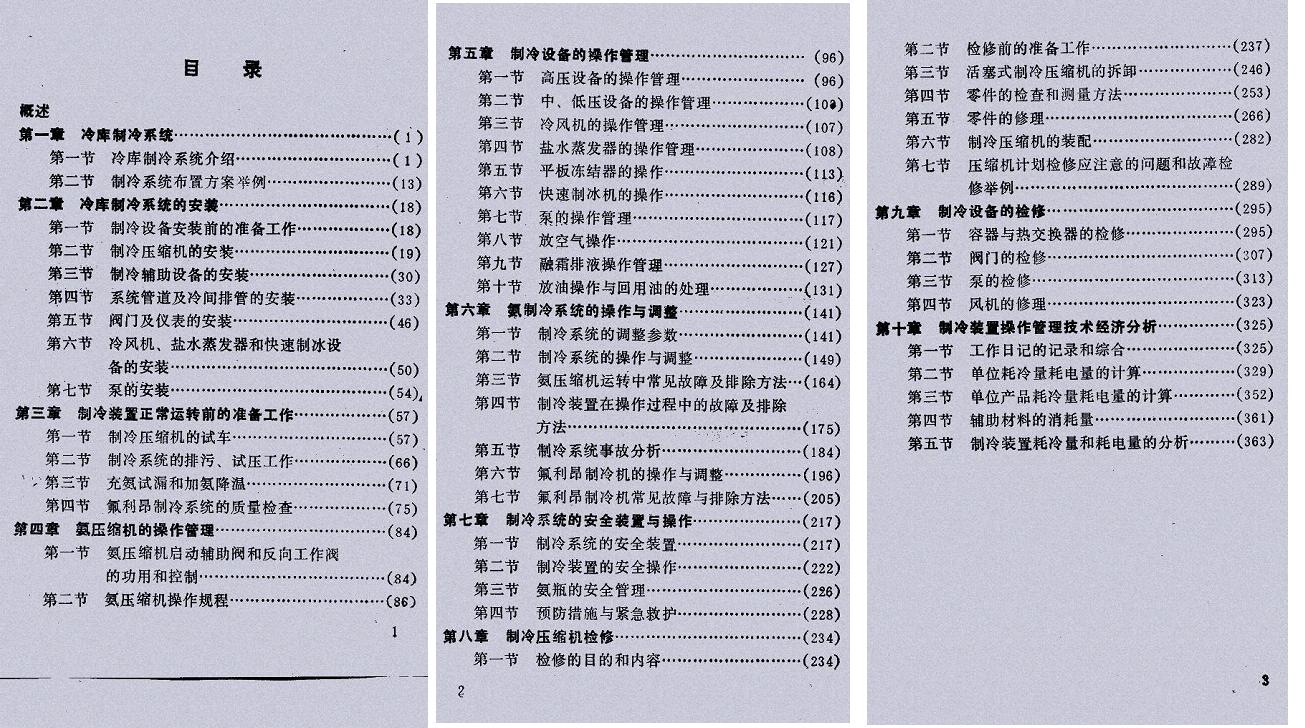 目 录
概述
第一章 冷库制冷系统……(1)
第一节 冷库制冷系统介绍……(1)
第二节 制冷系统布置方案举例……(13)
第二章 冷库制冷系统的安装……(18)
第一节 制冷设备安装前的准备工作……(18)
第二节 制冷压缩机的安装……(19)
第三节 制冷辅助设备的安装……(30)
第四节 系统管道及冷间排管的安装……(33)
第五节 阀门及仪表的安装……(46)
第六节 冷风机、盐水蒸发器和快速制冰设
备的安装……(50)
第七节 泵的安装……(54)
第三章 制冷装置正常运转前的准备工作……(57)
第一节 制冷压缩机的试车……(57)
第二节 制冷系统的排污、试压工作……(66)
第三节 充氨试漏和加氨降温……(71)
第四节 氟利昂制冷系统的质量检查……(75)
第四章 氨压缩机的操作管理……(84)
第一节 氨压缩机启动辅助阀和反向工作阀
的功用和控制……(84)
第二节 氨压缩机操作规程……(86)
1
第五章 制冷设备的操作管理……(96)
第一节 高压设备的操作管理……(96)
第二节 中、低压设备的操作管理……
第三节 冷风机的操作管理……(107)
第四节 盐水蒸发器的操作管理……(108)
第五节 平板冻结器的操作……(113)
第六节 快速制冰机的操作……(116)
第七节 泵的操作管理……(117)
第八节 放空气操作……(121)
第九节 融霜排液操作管理……(127)
第十节 放油操作与回用油的处理……(131)
第六章 氨制冷系统的操作与调整……(141)
第一节 制冷系统的调整参数……(141)
第二节 制冷系统的操作与调整……(149)
第三节 氨压缩机运转中常见故障及排除方法…(164)
第四节 制冷装置在操作过程中的故障及排除
方法……(175)
第五节 制冷系统事故分析……(184)
第六节 氟利昂制冷机的操作与调整……(196)
第七节 氟利昂制冷机常见故障与排除方法……(205)
第七章 制冷系统的安全装置与操作……(217)
第一节 制冷系统的安全装置……(217)
第二节 制冷装置的安全操作……(222)
第三节 氨瓶的安全管理……(226)
第四节 预防措施与紧急救护……(228)
第八章 制冷压缩机检修……(234)
第一节 检修的目的和内容……(234)
2
第二节 检修前的准备工作……(237)
第三节 活塞式制冷压缩机的拆卸……(246)
第四节 零件的检查和测量方法……(253)
第五节 零件的修理……(266)
第六节 制冷压缩机的装配……(282)
第七节 压缩机计划检修应注意的问题和故障检
修举例……(289)
第九章 制冷设备的检修……(295)
第一节 容器与热交换器的检修……(295)
第二节 阀门的检修……(307)
第三节 泵的检修……(313)
第四节 风机的修理……(323)
第十章 制冷装置操作管理技术经济分析……(325)
第一节 工作日记的记录和综合……(325)
第二节 单位耗冷量耗电量的计算……(329)
第三节 单位产品耗冷量耗电量的计算……(352)
第四节 辅助材料的消耗量……(361)
第五节 制冷装置耗冷量和耗电量的分析……(363)
3